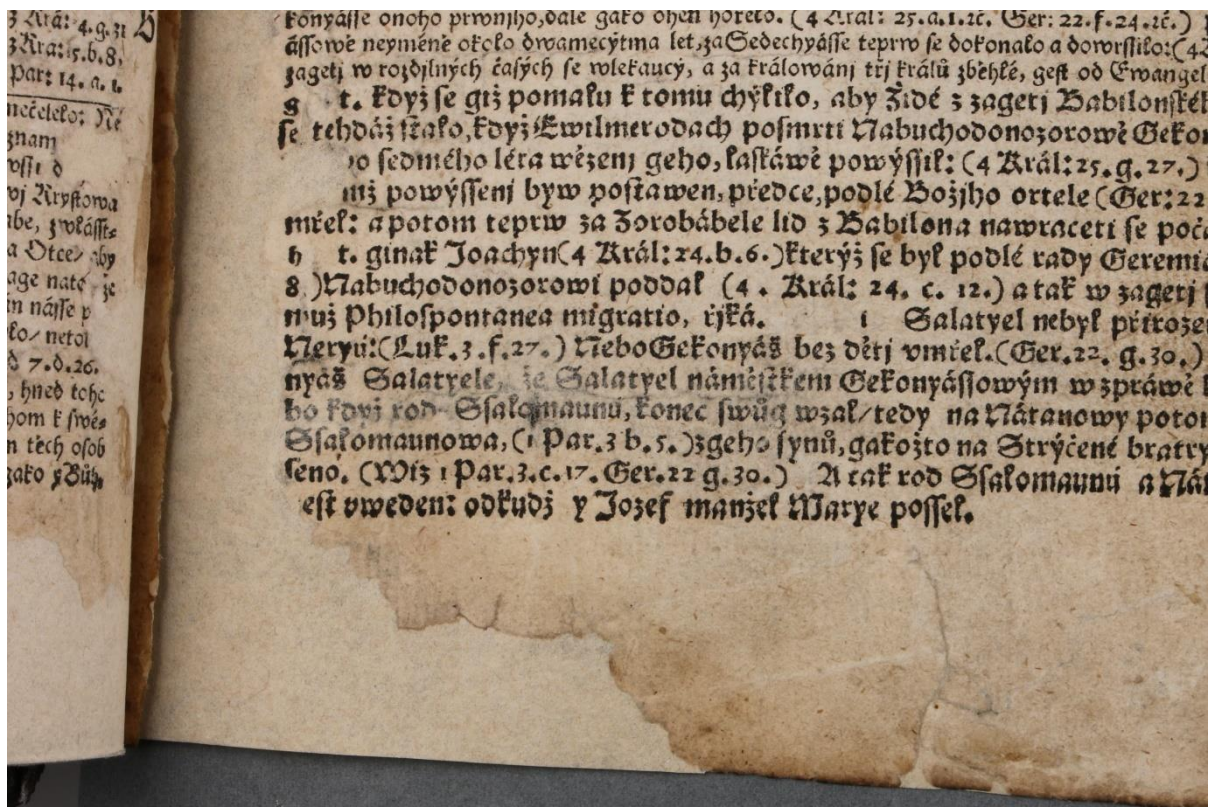 z Krá: 4.g.31
z Kra: 15.b.8.
Par: 14. a. 1.
mečeleko: Ne
znam
wj Krystowa
abe, zwlásst⸗
a Otce/ aby
age naté že
ln násse p
ko/ netol
d 7.d.26.
, hned tohc
hom k swé⸗
n těch osob
gako z Bůh,
konyásse onoho prwnjho, dále gako oheň hořelo. (4 Král: 25.a.1.ꝛč. Ger: 22.f.24.ꝛč.)
ássowě neyméně okolo dwamecýtma let, za Sedechyásse teprw se dokonalo a dowrssilo: (4
zagetj w rozdjlných časých se wlekaucý, a za králowánj třj králů zběhlé, gest od Ewangel
g t. když se giž pomalu k tomu chýlilo, aby Židé z zagetj Babilonské
se tehdáž stalo, když Ewilmerodach posmrti Nabuchodonozorowě Geko
o sedmého léta wězenj geho, laskáwě powýssil: (4 Král: 25. g. 27.)
mž powýssenj byw postawen, předce, podlé Božjho ortele (Ger: 22
mřel: a potom teprw za Zorobábele lid z Babilona nawraceti se poč
h t. ginak Joachyn (4 Král: 24. b. 6.) kterýž se byl podlé rady Geremi
8.) Nabuchodonozorowi poddal (4. Král: 24. c. 12.) a tak w zagetj
muž Philo spontanea migratio, řjká. i Salatyel nebyl přiroze
Neryů: (Luk. 3. f. 27.) Nebo Gekonyáš bez dětj vmřel. (Ger. 22. g. 30.)
nyáš Salatyele, že Salatyel náměstkem Gekonyássowým w zpráwě
ho když rod Ssalomaunů, konec swůg wzal/ tedy na Nátanowy poto
Ssalomaunowa, (1 Par. 3 b. 5.) z geho synů, gakožto na Strýčené bratry
seno. (Wiz 1 Par. 3. c. 17. Ger. 22 g. 30.) A tak rod Ssalomaunů a Ná
est vweden: odkudž y Jozef manžel Marye possel.